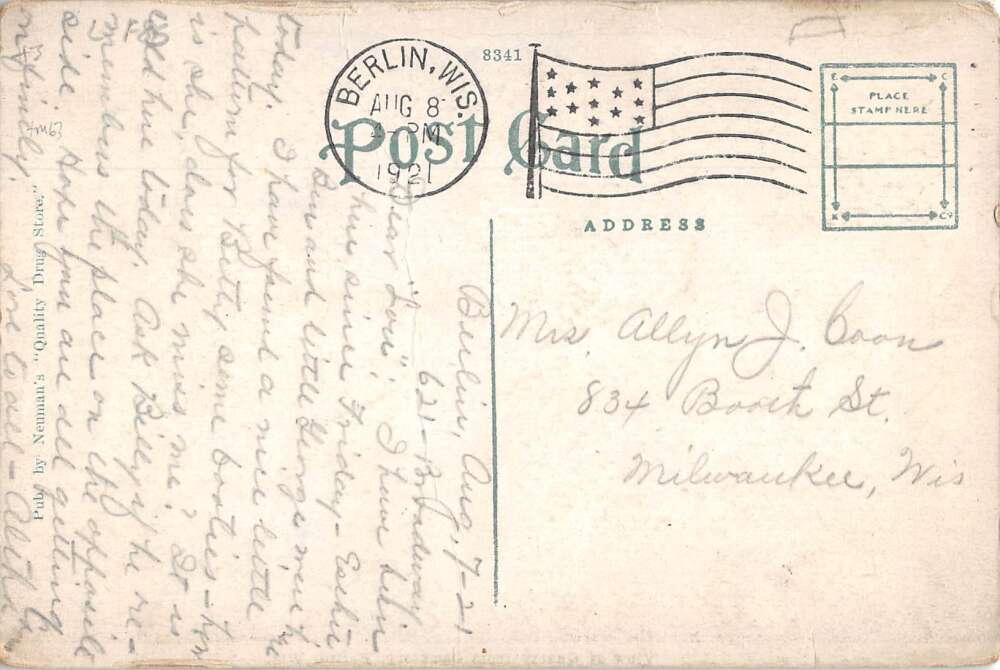 8341
BERLIN, WIS.
AUG 8
PM
1921
Post Card
ADDRESS
PLACE
STAMP HERE
Mrs. Allyn J. Coon
834 Booth St.
Milwaukee, Wis
Berlin, Aug, 7-21
621-Broadway
Dear "Lori", I have been
here since Friday - Esther
Den and little George were here
today. I have found a nice little
pattern for Betty some booties - how
is she, does she miss me? It is
cold here today. Ask Billy if he re-
members the place on the opposite
side. Hope you are all getting
n finely.
Love to all - Aletha
Pub. by Neuman's "Quality Drug Store."